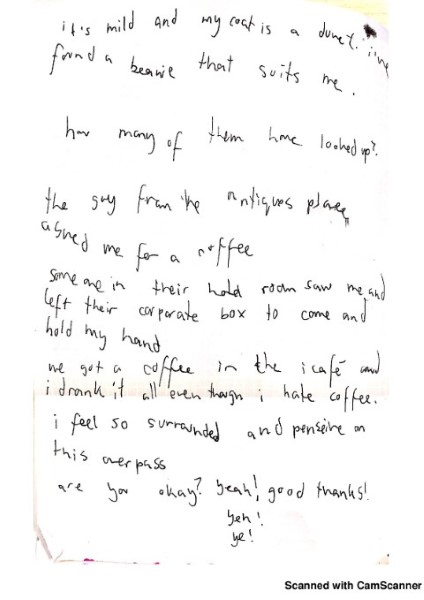 it's mild and my coat is a duvet. i've
found a beanie that suits me.
how many of them have looked up?
the guy from the antiques place
asked me for a coffee
someone in their hold room saw me and
left their corporate box to come and
hold my hand
we got a coffee in the icafé and
i drank it all even though i hate coffee.
i feel so surrounded and penseive on
this overpass
are you okay? yeah!, good thanks!
yeh!
ye!
Scanned with CamScanner